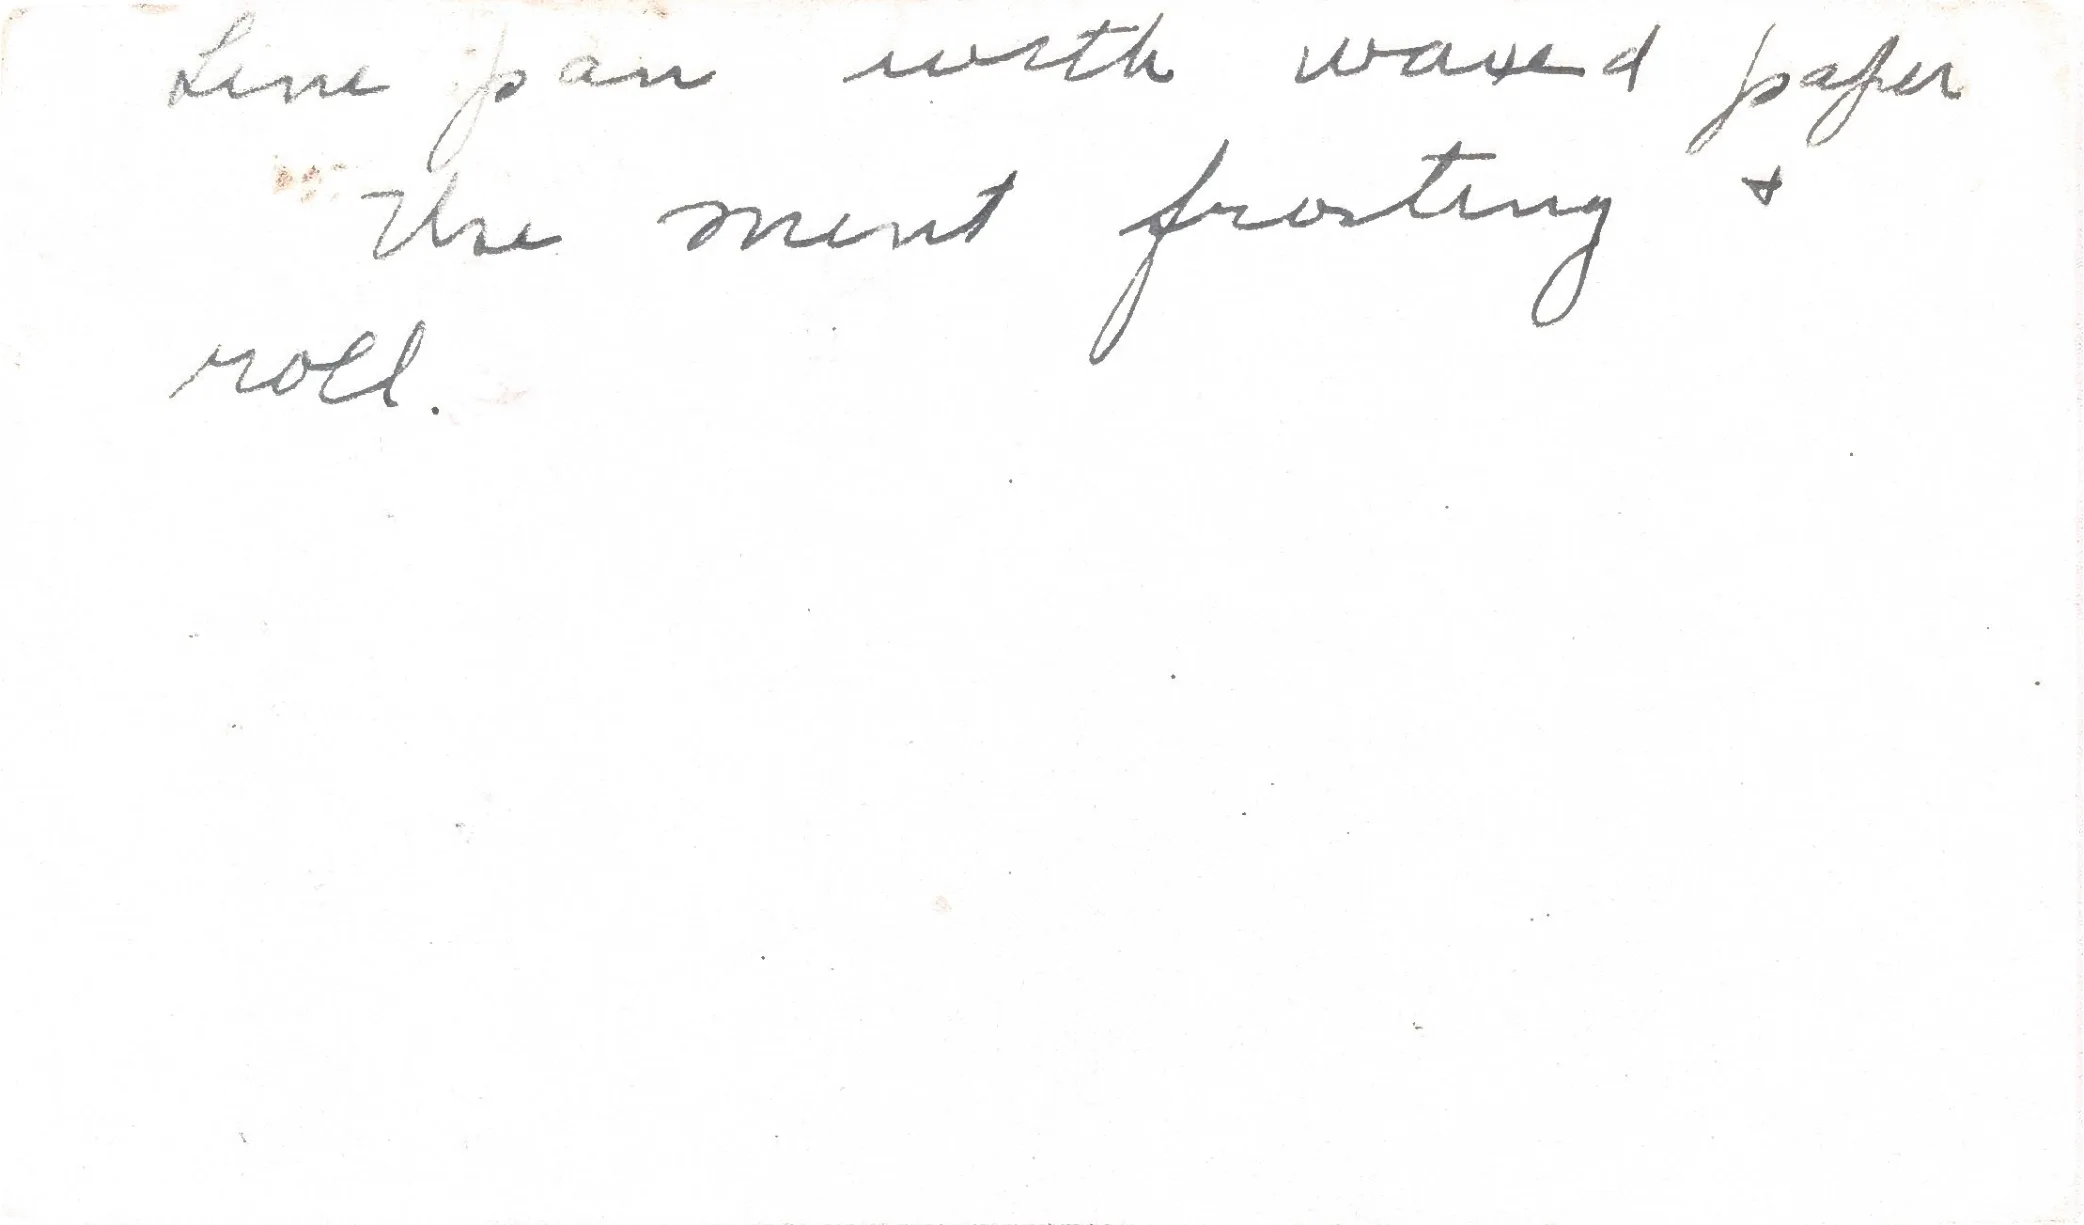 Line pan with waxed paper
Use mint frosting +
roll.